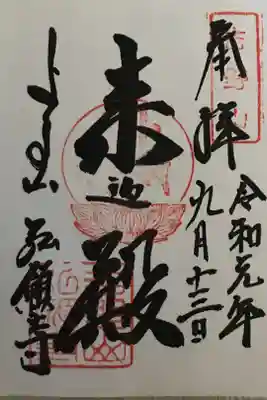 奉拝
令和元年
九月十三日
来迎殿
よしの山 弘願寺